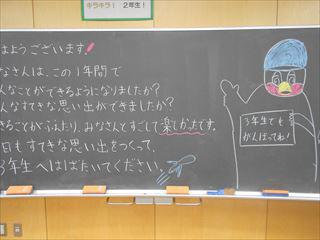 キラキラ! 2年生!
はようございます!
なさんは、この1年間で
んなことができるようになりましたか?
んなすてきな思い出ができましたか?
きることがふえたり、みなさんとすごして楽しかったです。
日もすてきな思い出をつくって、
3年生へはばたいてください。
3年生でも
がんばってね!